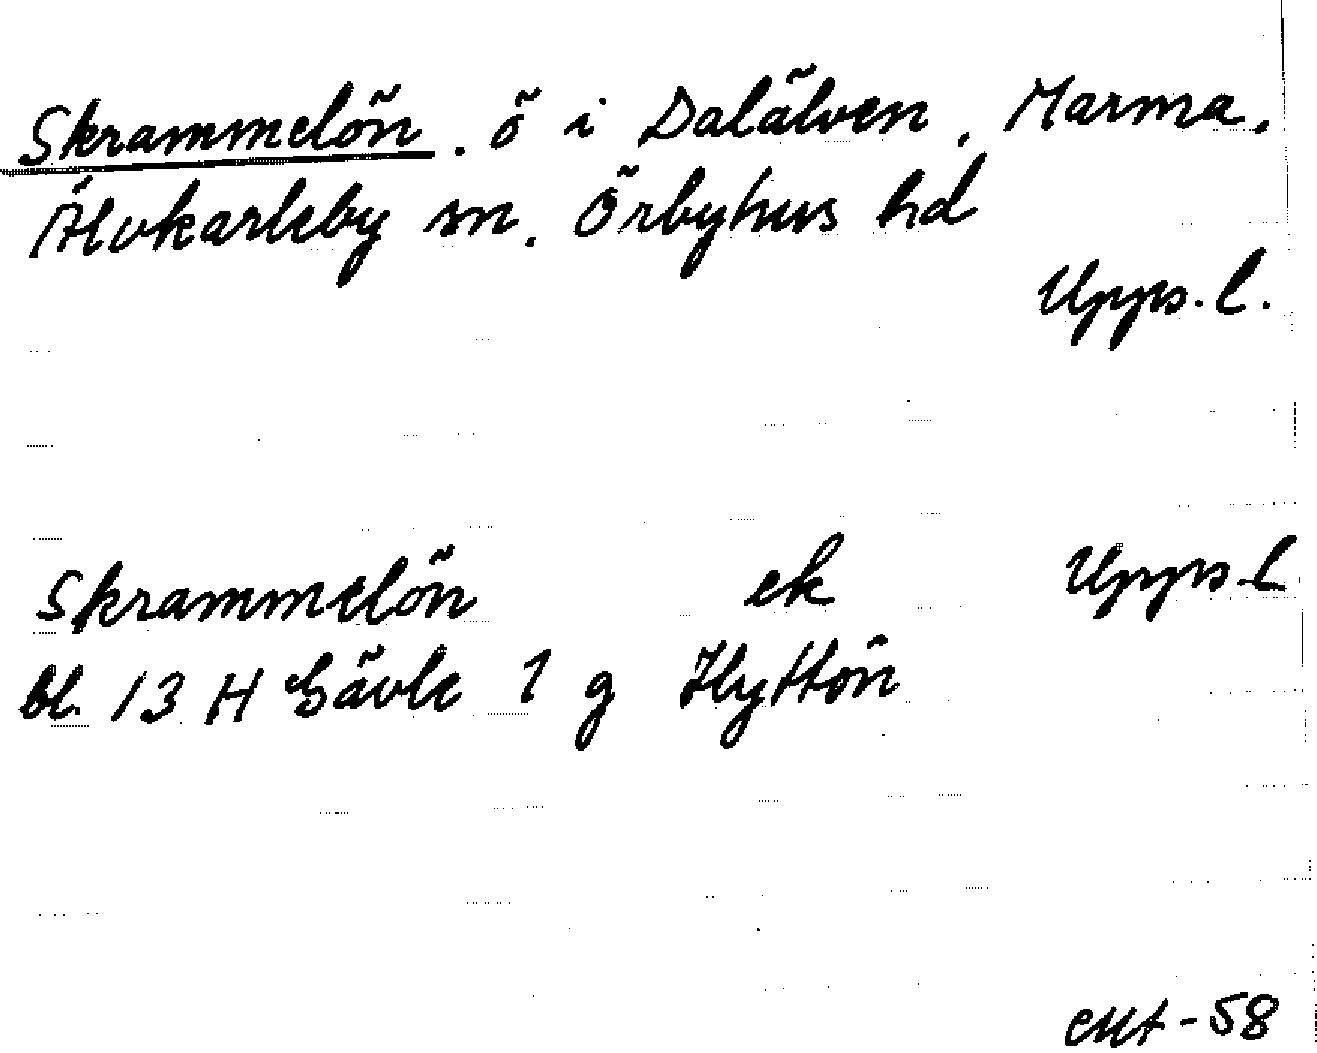 Skrammelön. ö i Dalälven, Marma,
Älvkarleby sn. Örbyhus hd
Upps. l.
Skrammelön ek Upps. l
bl. 13 H Gävle 1 g Hyttön
-58